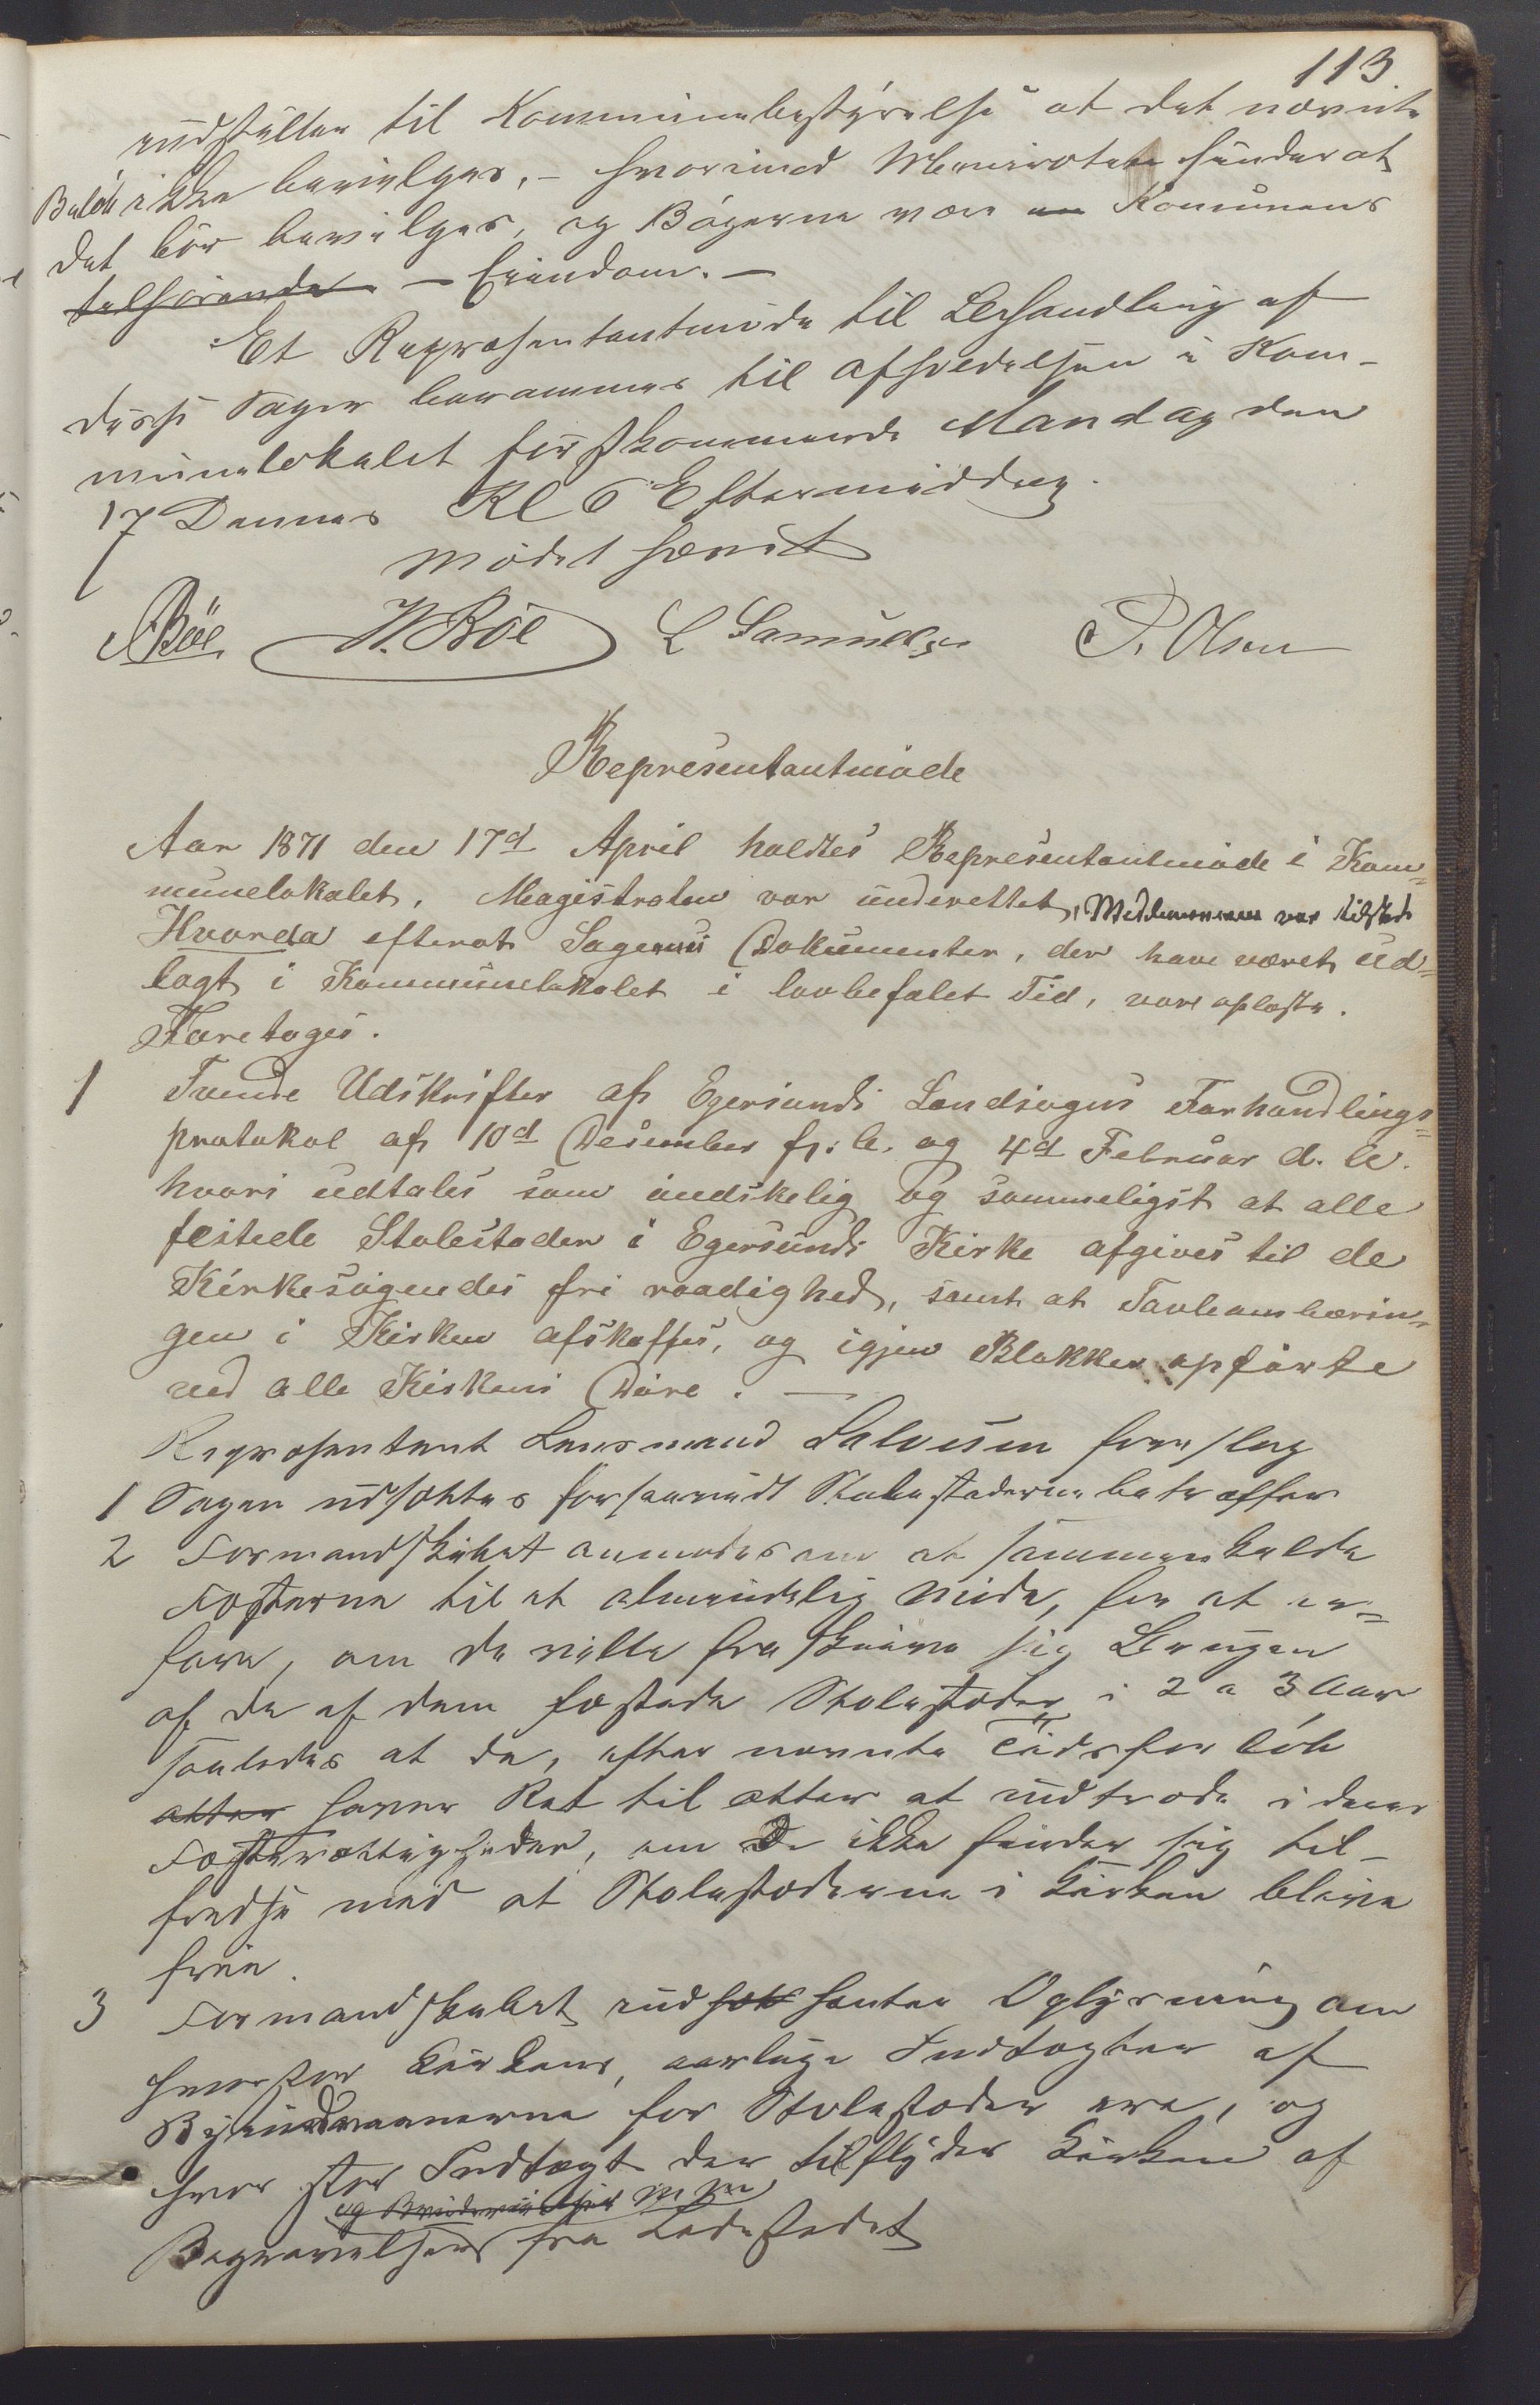 113
indstiller til Kommunebestyrelse at det nævnte
Beløb ikke bevilges, – hvorimod Minoriteten finder at
det bör bevilges, og Bögerne være en Komunens
tilhörende – Eiendom. –
Et Repræsentantmöde til Behandling af
disse Sager berammes til afholdelsen i Kom-
munelokalet förstkommende Mandag den
17 Dennes Kl 6 Eftermiddag.
Mödet hævet
Böe H. Böe L Samuels P. Olsen
Representantmöde
Aar 1871 den 17d April holdtes Representantmöde i Kom=
munelokalet. Magistraten var underettet, Medlemmer var tilstede
Hvorda efterat Sagernes Dokumenter, der have været ud=
lagt i Kommunelokalet i lovbefalet Tid, vare oplæste.
Foretoges.
1 Tvende Udskrifter af Egersunds Landsogns Forhandlings=
protokol af 10d Desember f. A. og 4d Februar d. A.
hvori udtales som öndskelig og sømmeligst at alle
festede Stolestader i Egersunds Kirke afgives til de
Kirkesögendes fri raadighed, samt at Tavleombærin=
gen i Kirken afskaffes, og igjen Blokker opförte
ved alle Kirkens Döre. –
Repræsentant Lensmand Salvesen foreslog
1 Sagen udsættes forsaavidt Stolestaderne betræffer
2 Formandskabet anmodes om at sammenkalde
Fæsterne til et almindelig Möde, for at er=
fare, om de ville fraskrive sig Brugen
af de af dem fæstede Stolestader i 2 a 3 Aar
saaledes at de, efter nævnte Tidsforlöb
atter haver Ret til atter at indtræde i deres
Fæsterettigheder, om De ikke finder sig til-
fredse med at Stolestaderne i Kirken blive
friie.
3 Formandskabet indhenter Oplysning om
hvorstor Kirkens aarlige Indtægter af
Byens for Stolestader ere, og
hvor stor Indtægt der tilflyder Kirken af
og m m
Begravelser fra Ladestedet